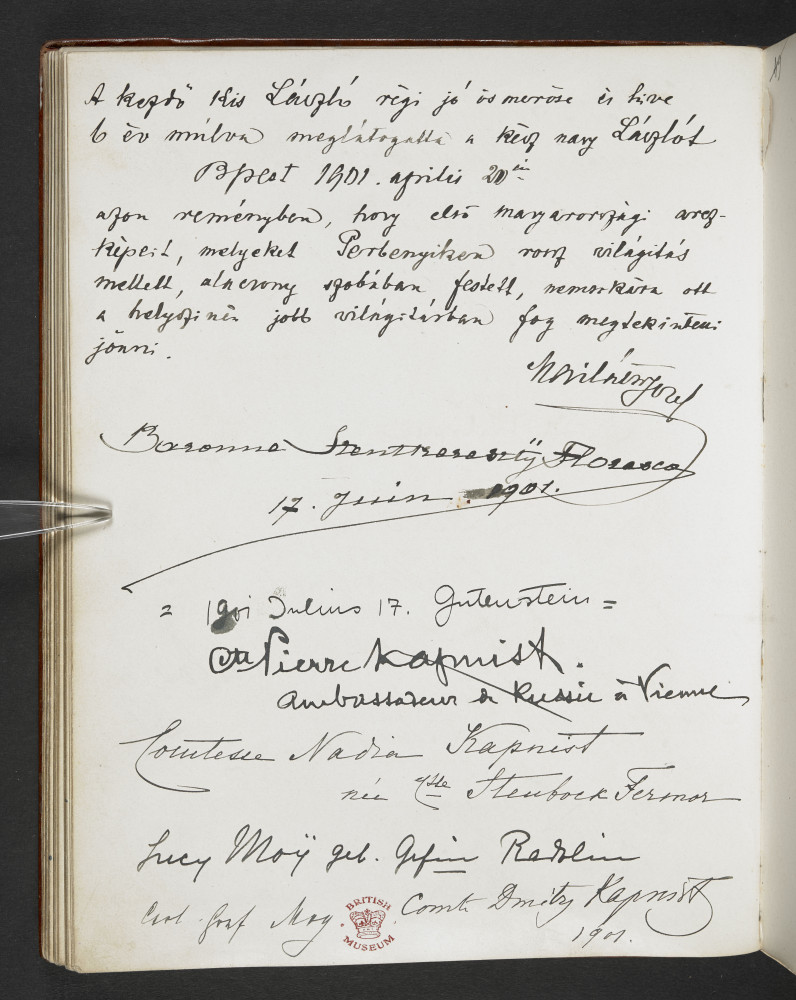 A kezdő Kis László régi jó ösmerőse és híve
6 év múlva meglátogatta a kész nagy Lászlót
Bpest 1901. április 20
azon reményben, hogy első magyarországi arcz-
képeit, melyeket Perbenyiken rossz világítás
mellett, alacsony szobában festett, nemsokára ott
a helyszinén jobb világitásban fog megtekinteni
jönni.
Baronne Szentkereszty Floresco
17. Juin 1901.
= 1901 Julius 17. Gutenstein =
Cte Pierre Kapnist.
Ambassadeur de Russie à Vienne
Comtesse Nadia Kapnist
née Csse Stenbock Fermor
Lucy Moÿ geb. Gräfin Radolin
Carl Graf Moy.
Comte Dmitry Kapnist
1901.
BRITISH
MUSEUM